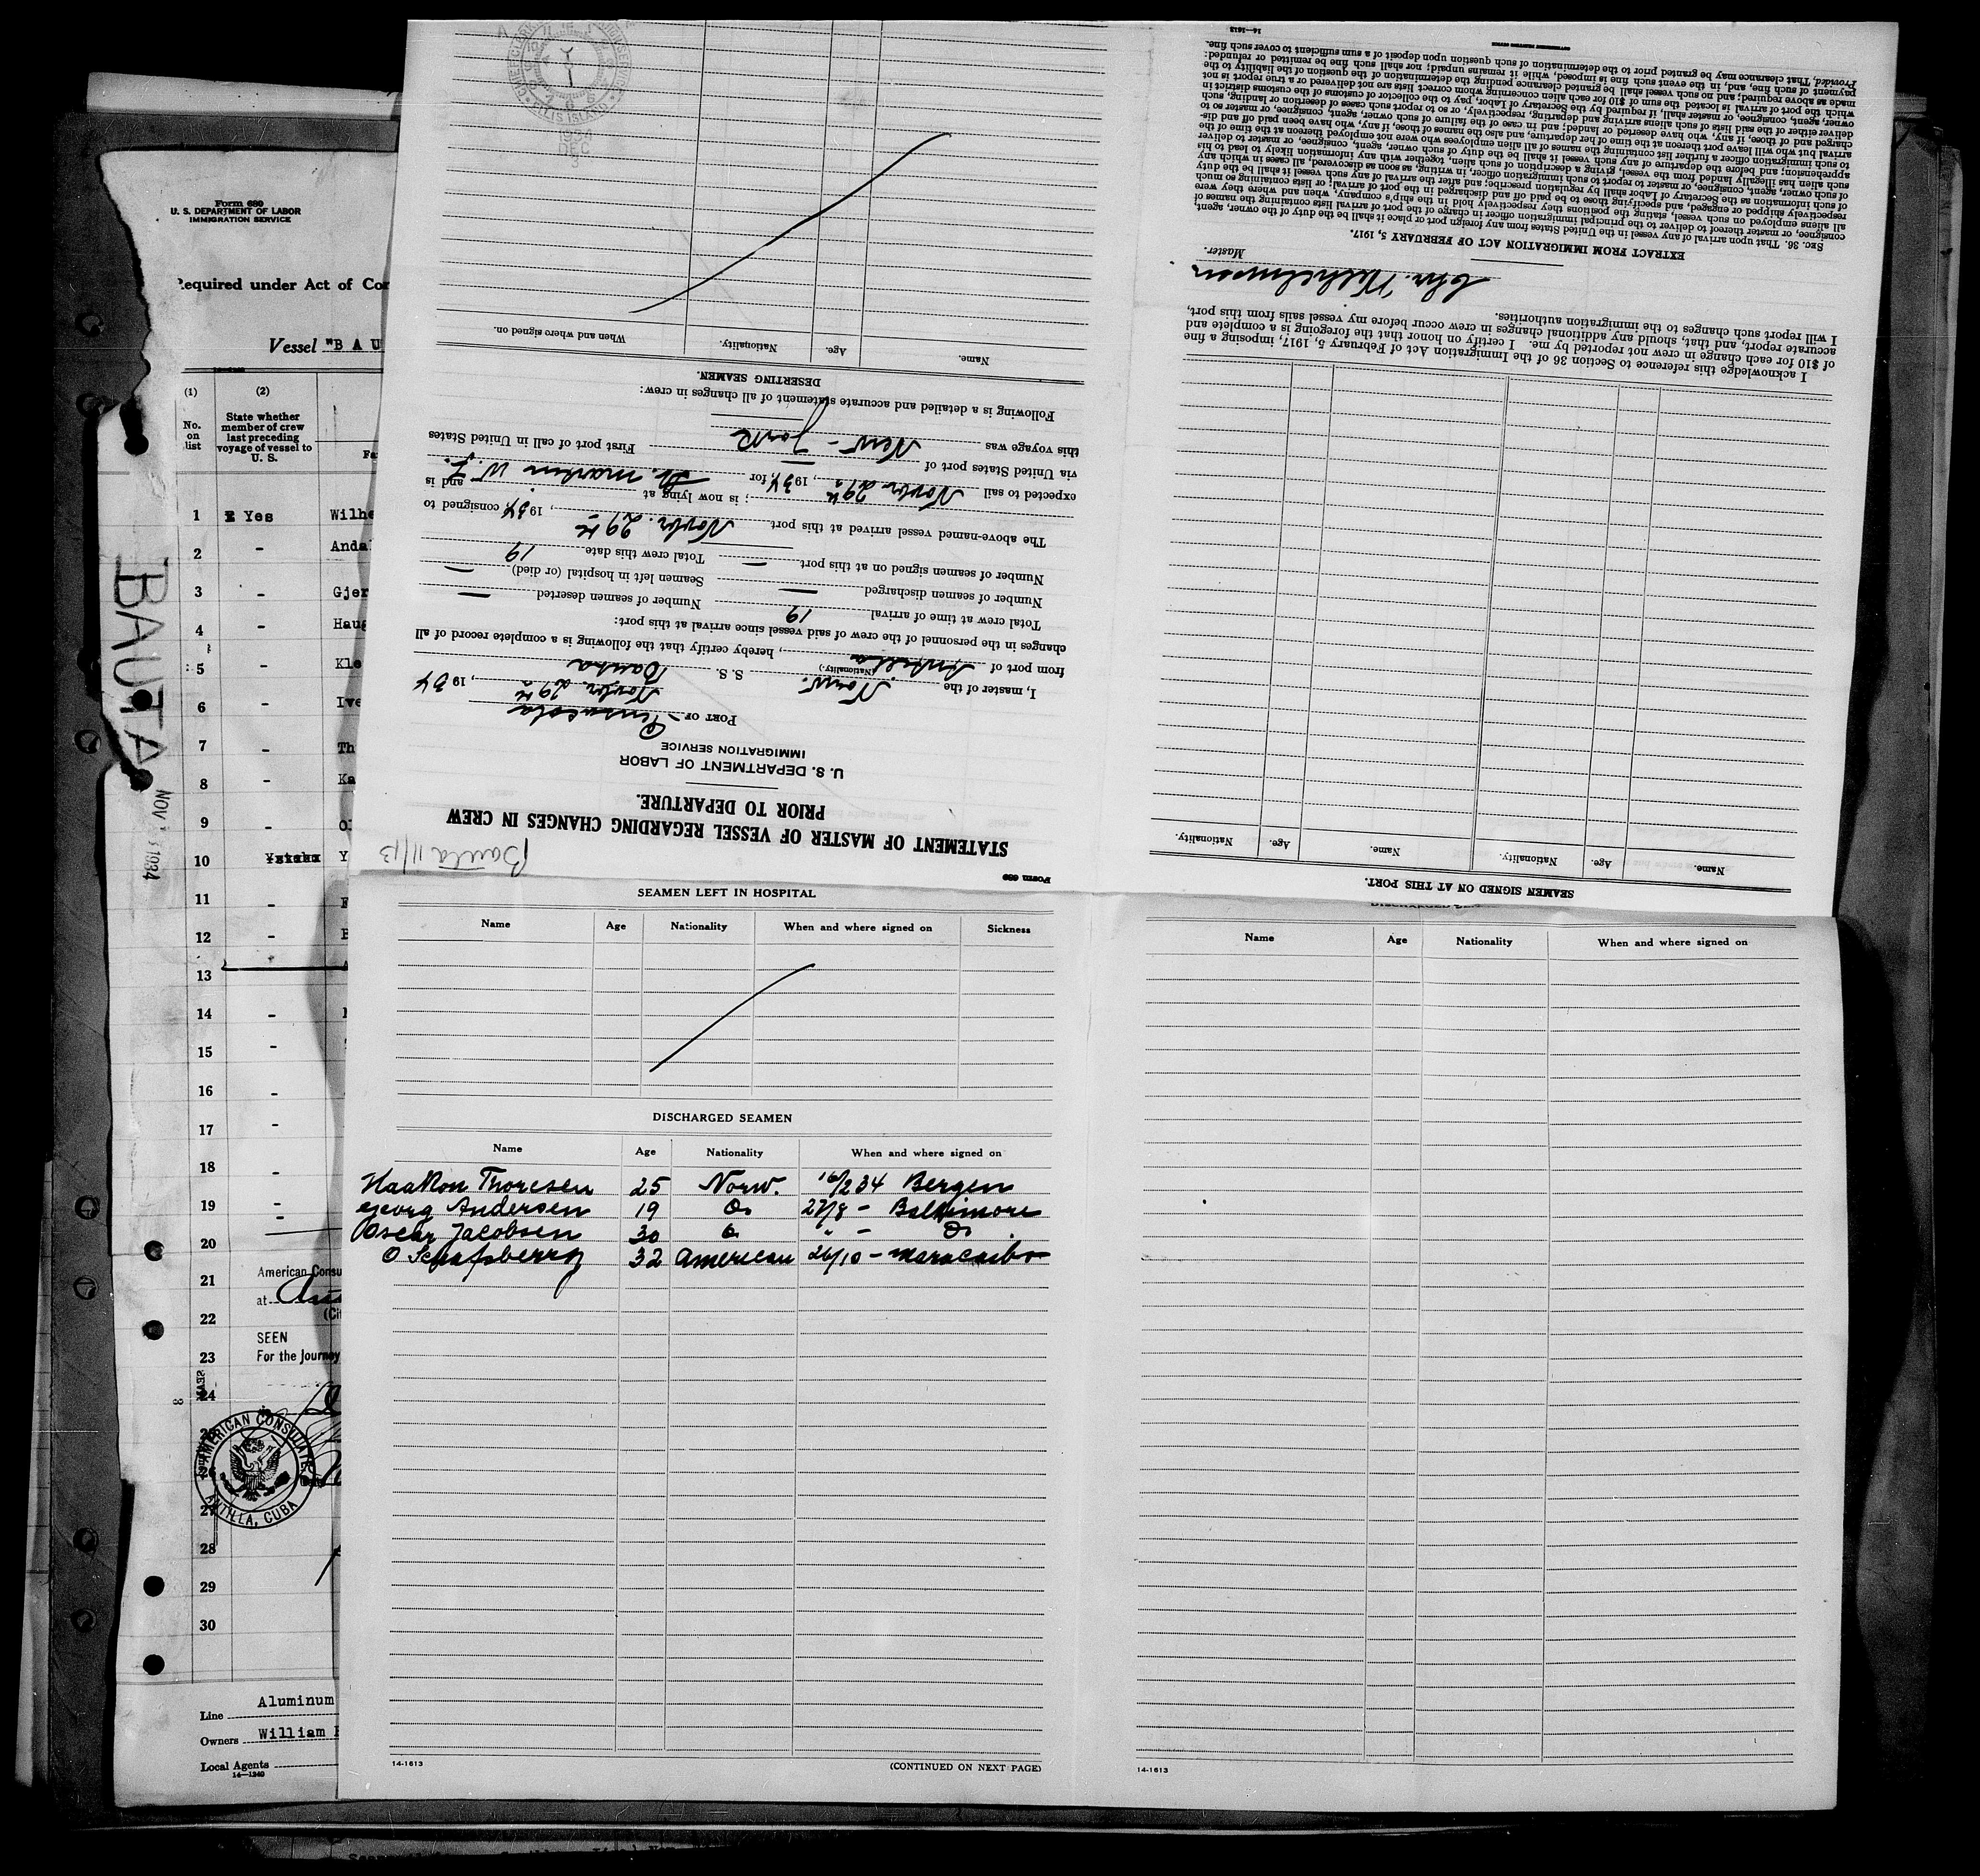 Form 680
U. S. DEPARTMENT OF LABOR
IMMIGRATION SERVICE
Required under Act of Con
Vessel "B A U
(1)
(2)
No. on list
State whether member of crew last preceding voyage of vessel to U. S.
Fa
1 Yes Wilhe
2 - Anda
3 - Gjer
4 - Haug
5 - Kle
6 - Ive
7 - Th
8 - Ka
9 - Ol
10 Y
11 -
12 -
13
14 -
15 -
16 -
17 -
18 -
19 -
20
21
22
23
24
27
28
29
30
BAUTA
NOV 1934
American Consu
at
(Cit
SEEN
For the Journey
AMERICAN CONSULATE
ANTILLA, CUBA
Line Aluminum
Owners William
Local Agents
14-1240
Form 689
Bauta 11/13
STATEMENT OF MASTER OF VESSEL REGARDING CHANGES IN CREW
PRIOR TO DEPARTURE.
U. S. DEPARTMENT OF LABOR
IMMIGRATION SERVICE
PORT OF Pensacola
Novbr. 29th, 1934
I, master of the Norw. S. S. Bauta
(Nationality.)
from port of Antilla, hereby certify that the following is a complete record of all
changes in the personnel of the crew of said vessel since arrival at this port:
Total crew at time of arrival 19 Number of seamen deserted —
Number of seamen discharged — Seamen left in hospital (or died) —
Number of seamen signed on at this port — Total crew this date 19
The above-named vessel arrived at this port Novbr. 29th, 1934, consigned to
; is now lying at and is
expected to sail Novbr. 29th, 1934, for
via United States port of —
this voyage was New-York First port of call in United States
Following is a detailed and accurate statement of all changes in crew:
DESERTING SEAMEN.
Name. Age. Nationality. When and where signed on.
ELLIS ISLAND
1934
DEC
3
SEAMEN SIGNED ON AT THIS PORT.
Name. Age. Nationality. Name. Age. Nationality.
I acknowledge this reference to Section 36 of the Immigration Act of February 5, 1917, imposing a fine
of $10 for each change in crew not reported by me. I certify on honor that the foregoing is a complete and
accurate report, and that, should any additional changes in crew occur before my vessel sails from this port,
I will report such changes to the immigration authorities.
Chr. Wilhelmsen
Master.
EXTRACT FROM IMMIGRATION ACT OF FEBRUARY 5, 1917.
SEC. 36. That upon arrival of any vessel in the United States from any foreign port or place it shall be the duty of the owner, agent,
consignee, or master thereof to deliver to the principal immigration officer in charge of the port of arrival lists containing the names of
all aliens employed on such vessel, stating the positions they respectively hold in the ship's company, when and where they were
respectively shipped or engaged, and specifying those to be paid off and discharged in the port of arrival; or lists containing so much
of such information as the Secretary of Labor shall by regulation prescribe; and after the arrival of any such vessel it shall be the duty
of such owner, agent, consignee, or master to report to such immigration officer, in writing, as soon as discovered, all cases in which any
such alien has illegally landed from the vessel, giving a description of such alien, together with any information likely to lead to his
apprehension; and before the departure of any such vessel it shall be the duty of such owner, agent, consignee, or master to deliver
to such immigration officer a further list containing the names of all alien employees who were not employed thereon at the time of the
arrival but who will leave port thereon at the time of her departure, and also the names of those, if any, who have been paid off and dis-
charged and of those, if any, who have deserted or landed; and in case of the failure of such owner, agent, consignee, or master so to
deliver either of the said lists of such aliens arriving and departing, respectively, or so to report such cases of desertion or landing, such
owner, agent, consignee, or master shall, if required by the Secretary of Labor, pay to the collector of customs of the customs district in
which the port of arrival is located the sum of $10 for each alien concerning whom correct lists are not delivered or a true report is not
made as above required; and no such vessel shall be granted clearance pending the determination of the question of the liability to the
payment of such fine, and, in the event such fine is imposed, while it remains unpaid; nor shall such fine be remitted or refunded:
Provided, That clearance may be granted prior to the determination of such question upon deposit of a sum sufficient to cover such fine.
14-1613
SEAMEN LEFT IN HOSPITAL
Name Age Nationality When and where signed on Sickness
DISCHARGED SEAMEN
Name Age Nationality When and where signed on
Haakon Thoresen 25 Norw. 16/2 34 Bergen
Georg Andersen 19 Do 27/8 - Baltimore
Oscar Jacobsen 30 Do " - Do
32 American 26/10 - Maracaibo
14-1613
(CONTINUED ON NEXT PAGE)
Name Age Nationality When and where signed on
14-1613